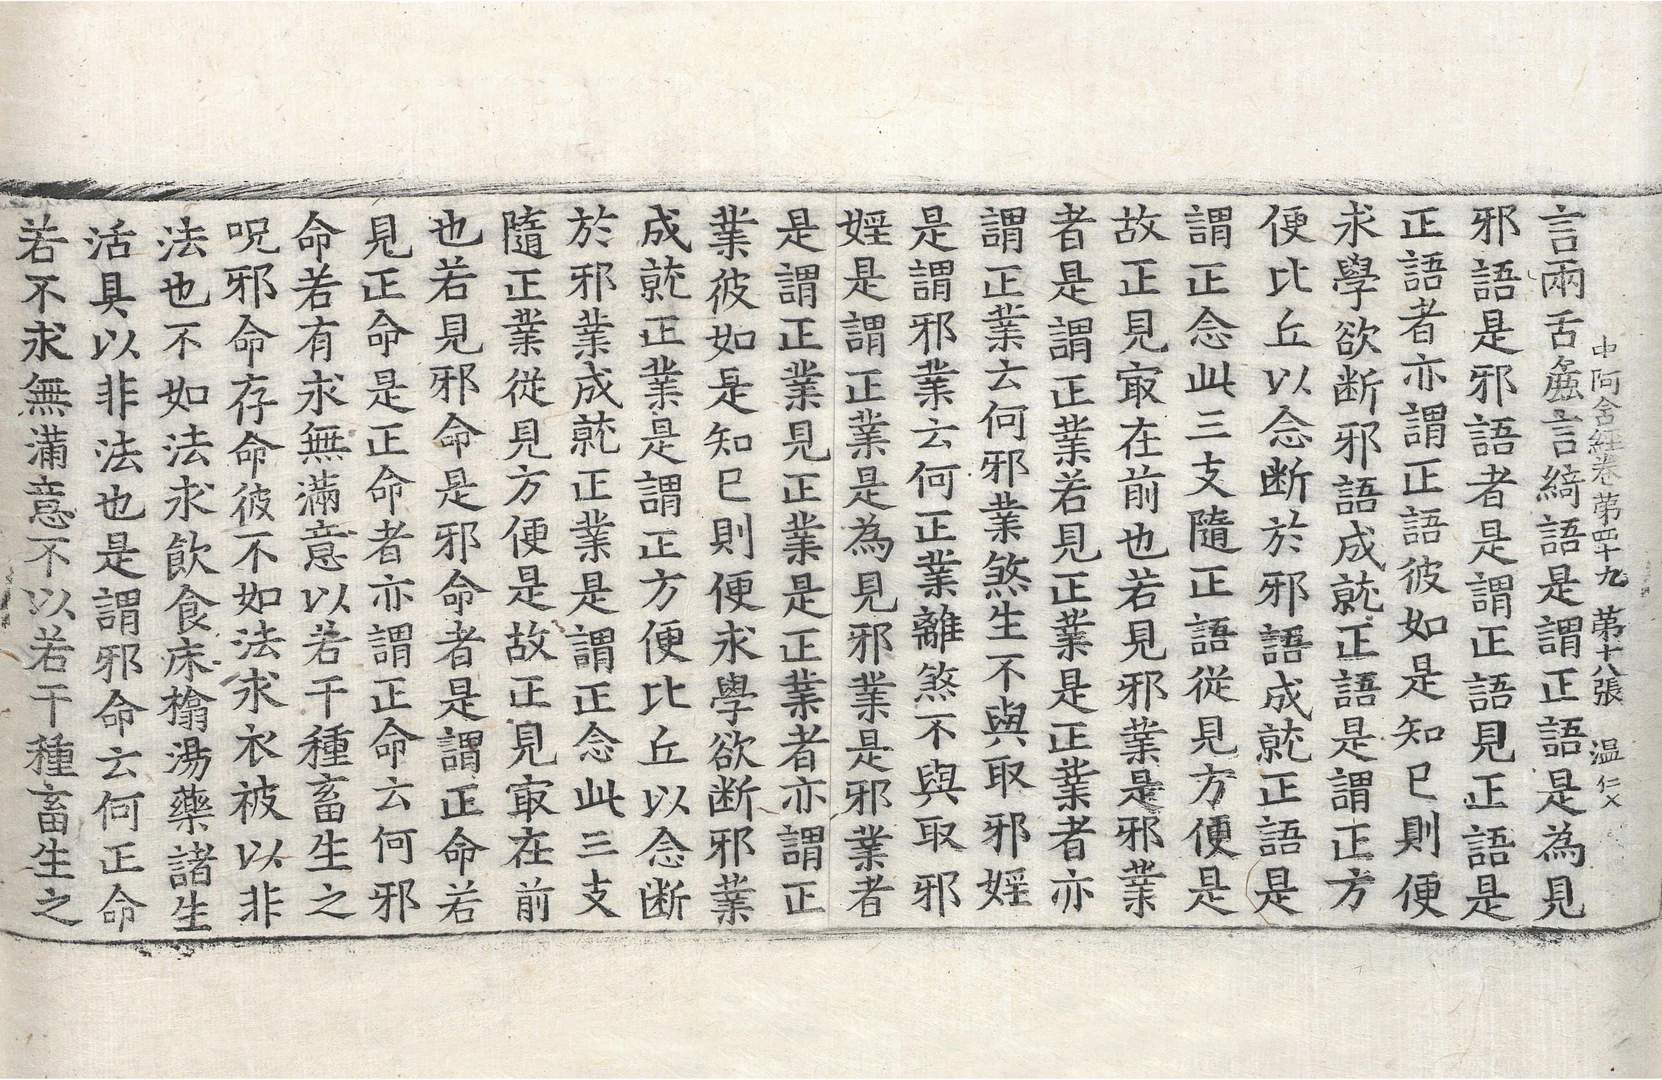 中阿含經卷第四十九 第十八張 温仁乂
言兩舌麁言綺語是謂正語是為見
邪語是邪語者是謂正語見正語是
正語者亦謂正語彼如是知已則便
求學欲断邪語成就正語是謂正方
便比丘以念断於邪語成就正語是
謂正念此三支隨正語從見方便是
故正見㝡在前也若見邪業是邪業
者是謂正業若見正業是正業者亦
謂正業云何邪業煞生不與取邪婬
是謂邪業云何正業離煞不與取邪
婬是謂正業是為見邪業是邪業者
是謂正業見正業是正業者亦謂正
業彼如是知已則便求學欲断邪業
成就正業是謂正方便比丘以念断
於邪業成就正業是謂正念此三支
隨正業從見方便是故正見㝡在前
也若見邪命是邪命者是謂正命若
見正命是正命者亦謂正命云何邪
命若有求無滿意以若干種畜生之
呪邪命存命彼不如法求衣被以非
法也不如法求飲食床榻湯藥諸生
活具以非法也是謂邪命云何正命
若不求無滿意不以若干種畜生之